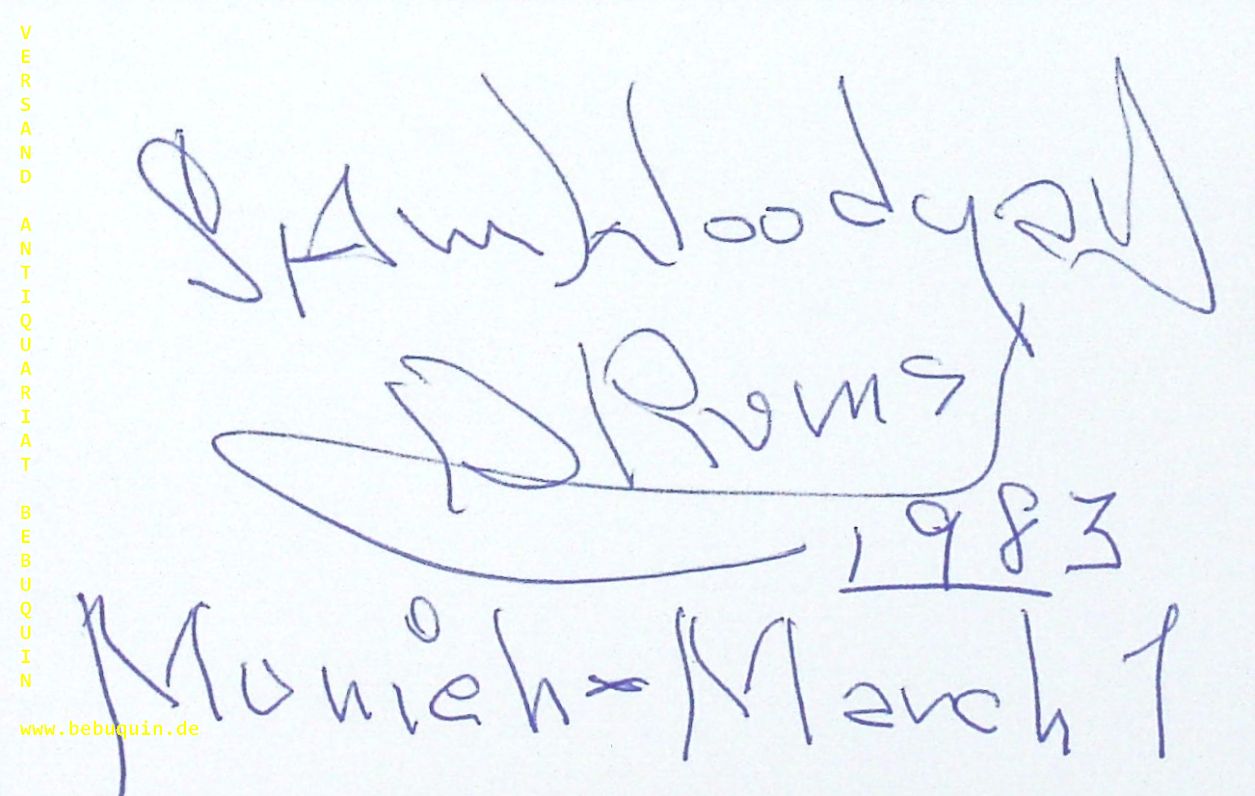 SAm Woodyard
DRums
1983
Munich - March 1
VERSAND ANTIQUARIAT BEBUQUIN
www.bebuquin.de